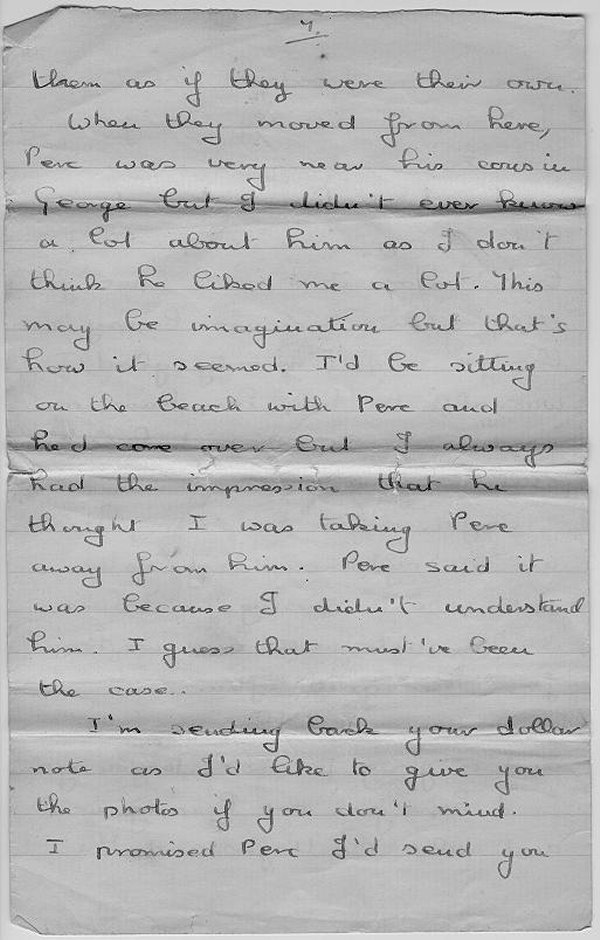 7.
them as if they were their own.
When they moved from here,
Perc was very near his cousin
George but I didn't ever know
a lot about him as I don't
think he liked me a lot. This
may be imagination but that's
how it seemed. I'd be sitting
on the beach with Perc and
he'd come over but I always
had the impression that he
thought I was taking Perc
away from him. Perc said it
was because I didn't understand
him. I guess that must've been
the case..
I'm sending back your dollar
note as I'd like to give you
the photos if you don't mind.
I promised Perc I'd send you